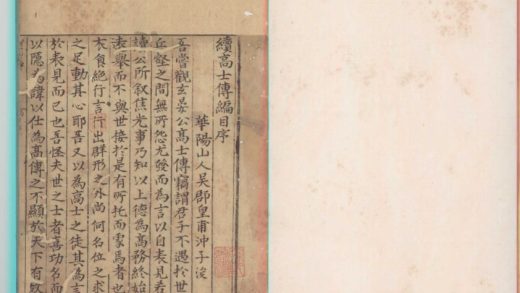 續高士傳編目序
華陽山人吳郡皇甫沖子浚
吾嘗觀玄晏公高士傳竊謂君子不遇於世
丘壑之間無所怨尤發而為言以自表見
讀公所叙焦光事乃知以上德為高務終始
遠舉而不與世接於是有所托而蒙焉者也
衣食絕行言行出群形之外尚何名位之求
之足動其心耶吾又以為高士之徒其為言
於表見而已也吾怪夫世之士者喜功名而
以隱為諱以仕為高傳之不顯於天下有